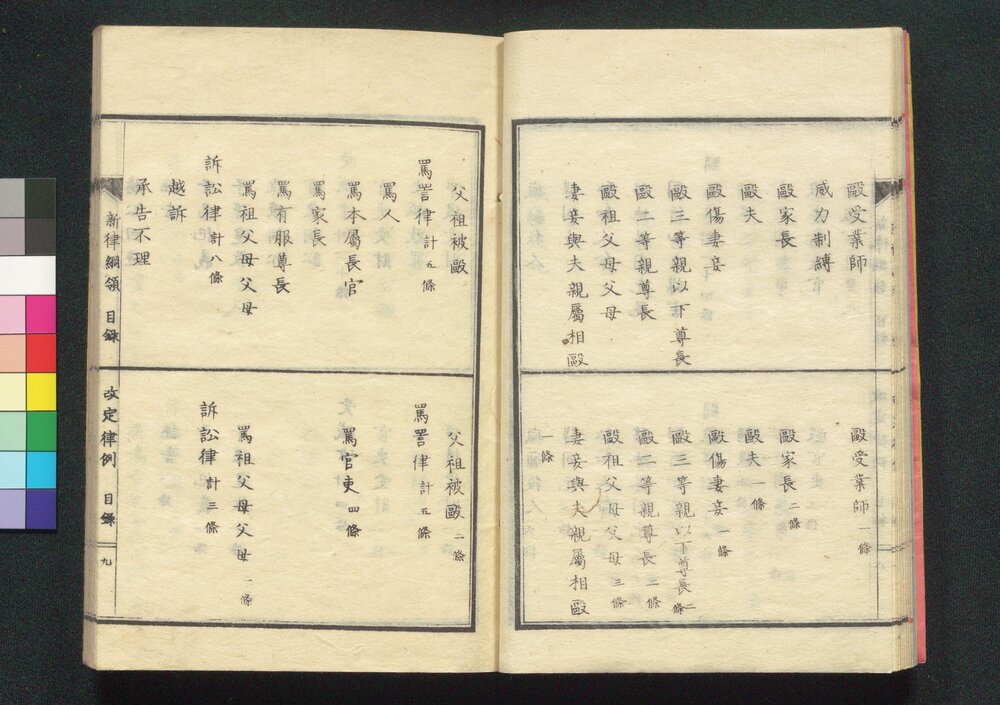 毆受業師
威力制縛
毆家長
毆夫
毆傷妻妾
毆三等親以下尊長
毆二等親尊長
毆祖父母父母
妻妾與夫親屬相毆
毆受業師 一條
毆家長 二條
毆夫 一條
毆傷妻妾 一條
毆三等親以下尊長 二條
毆二等親尊長 二條
毆祖父母父母 三條
妻妾與夫親屬相毆
一條
父祖被毆
罵詈律 計五條
罵人
罵本屬長官
罵家長
罵有服尊長
罵祖父母父母
訴訟律 計八條
越訴
承告不理
父祖被毆 二條
罵詈律 計五條
罵官吏 四條
罵祖父母父母 一條
訴訟律 計三條
新律綱領 目錄
改定律例 目錄 九